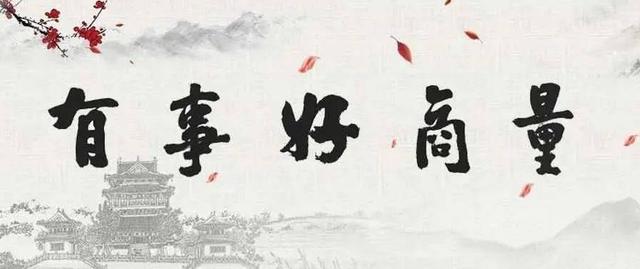 有事好商量